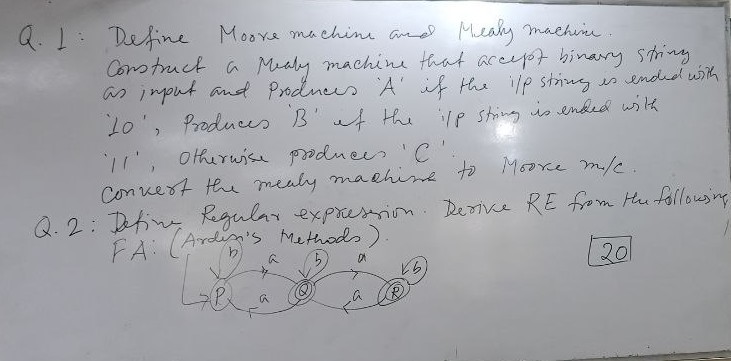 Q. 1 : Define Moore machine and Mealy machine.
Construct a Mealy machine that accept binary string
as input and Produces 'A' if the i/p string is ended with
'10', Produces 'B' if the i/p string is ended with
'11', Otherwise produces 'C'.
Convert the mealy machine to Moore m/c.
Q. 2 : Define Regular expression. Derive RE from the following
FA: (Arden's Methods).
20
b a b a b
P a Q a R